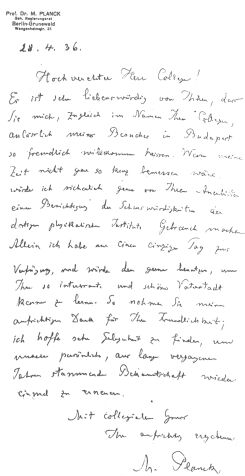 Prof. Dr. M. PLANCK
Geh. Regierungsrat
Berlin-Grunewald
Wangenheimstr. 21
28. 4. 36.
Hochverehrter Herr College!
Es ist sehr liebenswürdig von Ihnen, dass
Sie mich, zugleich im Namen Ihrer Collegen,
anlässlich meines Besuches in Budapest
so freundlich willkommen heissen. Wenn meine
Zeit nicht gar so knapp bemessen wäre
würde ich sicherlich gern von Ihrem Anerbieten
einer Besichtigung der Sehenswürdigkeiten des
dortigen physikalischen Instituts Gebrauch machen
Allein ich habe nur einen einzigen Tag zur
Verfügung, und würde den gerne benutzen, um
Ihre so interessante und schöne Vaterstadt
kennen zu lernen. So nehmen Sie meinen
aufrichtigen Dank für Ihre Freundlichkeit;
ich hoffe sehr Gelegenheit zu finden, um
unsere persönliche, aus lange vergangenen
Jahren stammende Bekanntschaft wieder
einmal zu erneuern.
Mit collegialem Gruss
Ihr aufrichtig ergebener
M. Planck.